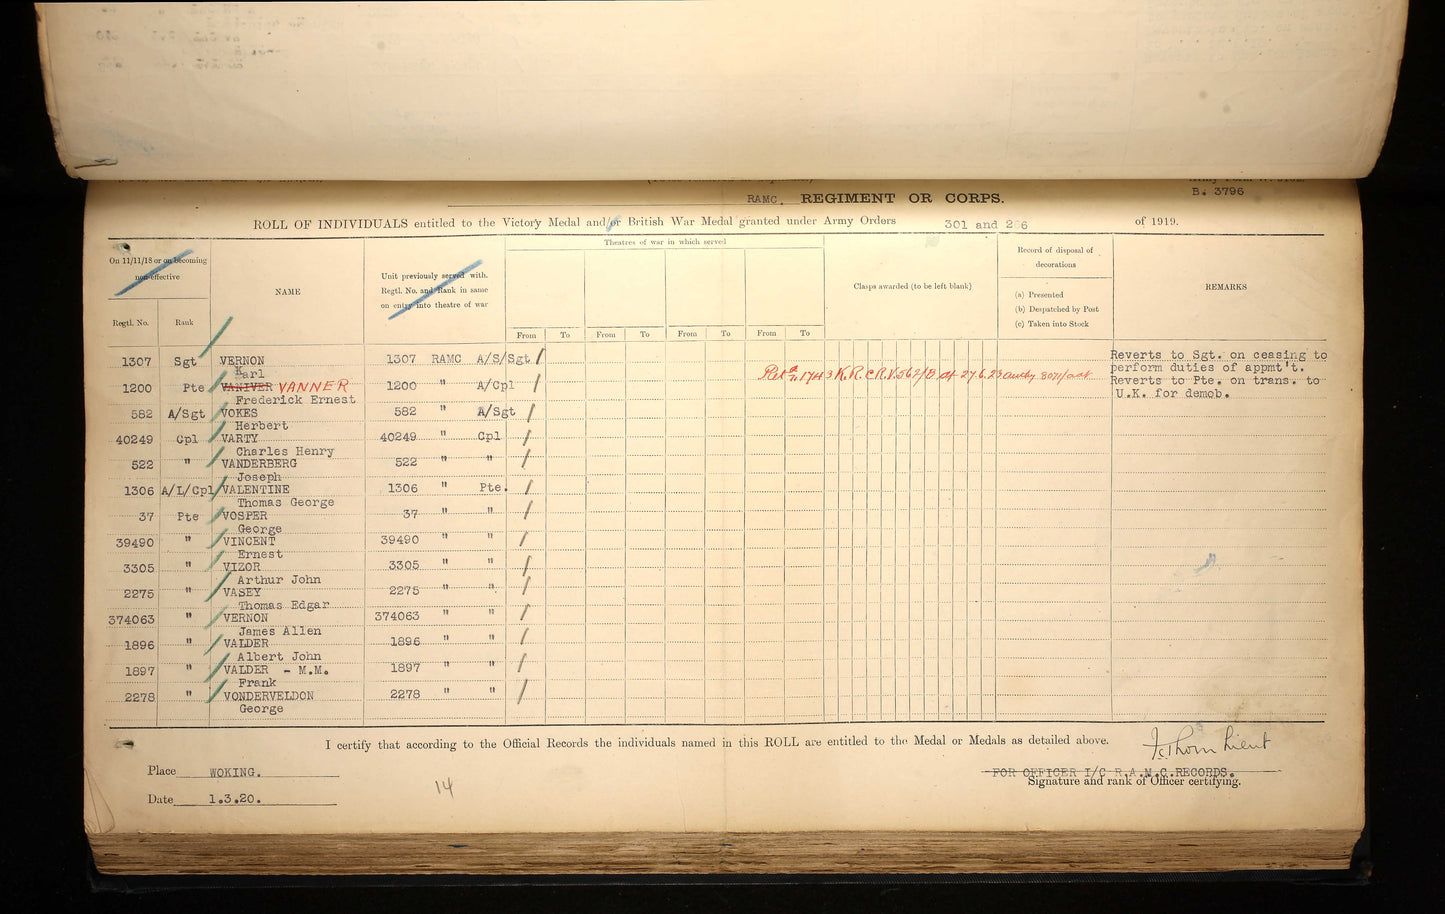 B. 3796
RAMC. REGIMENT OR CORPS.
ROLL OF INDIVIDUALS entitled to the Victory Medal and/or British War Medal granted under Army Orders 301 and 266 of 1919.
On 11/11/18 or on becoming non-effective
Regtl. No. Rank
NAME
Unit previously served with. Regtl. No. and Rank in same on entry into theatre of war
Theatres of war in which served
From To From To From To From To
Clasps awarded (to be left blank)
Record of disposal of decorations
(a) Presented
(b) Despatched by Post
(c) Taken into Stock
REMARKS
1307 Sgt VERNON 1307 RAMC A/S/Sgt Reverts to Sgt. on ceasing to
Karl perform duties of appmt't.
1200 Pte VANIVER VANNER 1200 " A/Cpl 1743 K.R. 1962/B of 27.6.23 authy 8071/adt Reverts to Pte. on trans. to
Frederick Ernest U.K. for demob.
582 A/Sgt VOKES 582 " A/Sgt
Herbert
40249 Cpl VARTY 40249 " Cpl
Charles Henry
522 " VANDERBERG 522 " "
Joseph
1306 A/L/Cpl VALENTINE 1306 " Pte.
Thomas George
37 Pte VOSPER 37 " "
George
39490 " VINCENT 39490 " "
Ernest
3305 " VIZOR 3305 " "
Arthur John
2275 " VASEY 2275 " "
Thomas Edgar
374063 " VERNON 374063 " "
James Allen
1896 " VALDER 1896 " "
Albert John
1897 " VALDER - M.M. 1897 " "
Frank
2278 " VONDERVELDON 2278 " "
George
I certify that according to the Official Records the individuals named in this ROLL are entitled to the Medal or Medals as detailed above.
Thorn Lieut
Place WOKING.
FOR OFFICER I/C R.A.M.C. RECORDS.
Signature and rank of Officer certifying.
Date 1.3.20.
14